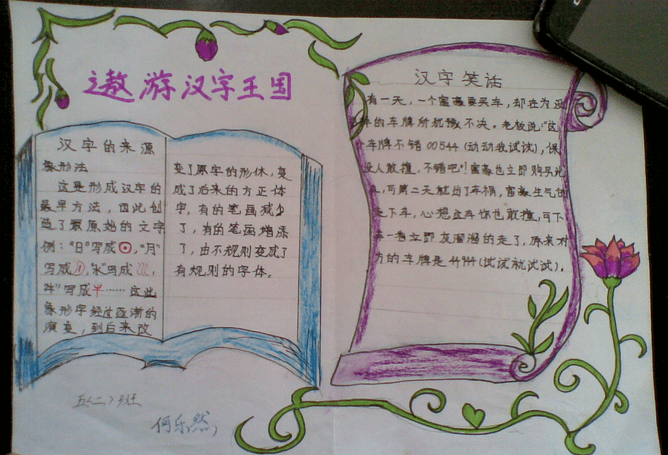 遨游汉字王国
汉字的来源
象形法
这是形成汉字的
最早方法，因此创
造了最原始的文字
例："日"写成，"月"
写成，"水"写成，
写成……这些
象形字经过逐渐的
演变，到后来改
变了原字的形体，变
成了后来的方正体
字，有的笔画减少
了，有的笔画增添
了，由不规则变成了
有规则的字体。
汉字笑话
有一天，一个富豪要买车，却在为选
车的车牌所犹豫不决。老板说："这
车牌不错00544（动动我试试），保
没人敢撞，不错吧！"富豪也立即购买此
车，可第二天就出了车祸，富豪生气地
走下车，心想这车你也敢撞，可下
车一看立即灰溜溜的走了，原来对
方的车牌是44944（试试就试试）。
五〈二〉班
何乐然